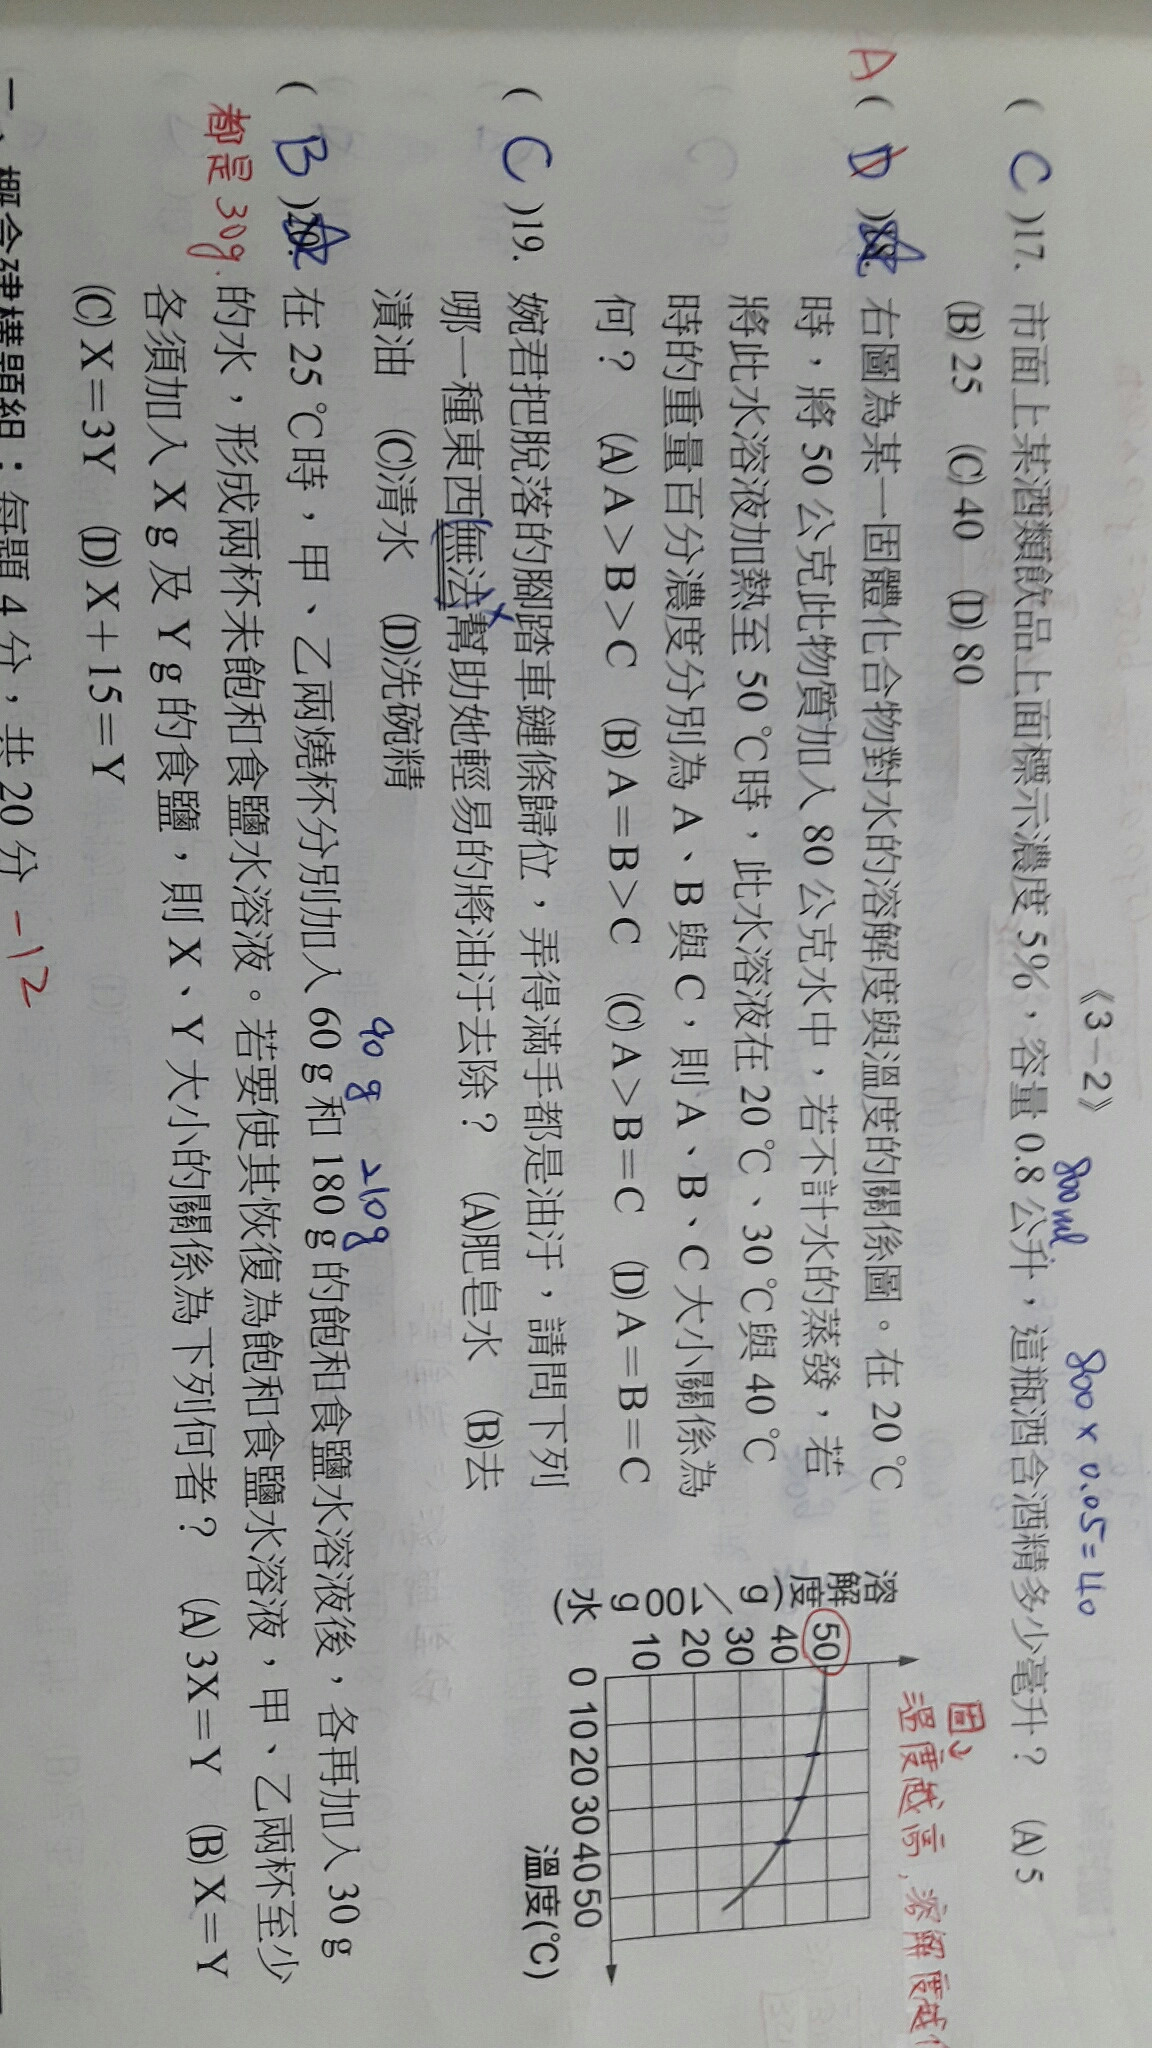 《3－2》
800ml
800 × 0.05 = 40
( C )17. 市面上某酒類飲品上面標示濃度 5%，容量 0.8 公升，這瓶酒含酒精多少毫升？ (A) 5
(B) 25 (C) 40 (D) 80
A ( D )18. 右圖為某一固體化合物對水的溶解度與溫度的關係圖。在 20 ℃
時，將 50 公克此物質加入 80 公克水中，若不計水的蒸發，若
將此水溶液加熱至 50 ℃時，此水溶液在 20 ℃、30 ℃與 40 ℃
時的重量百分濃度分別為 A、B 與 C，則 A、B、C 大小關係為
何？ (A) A＞B＞C (B) A＝B＞C (C) A＞B＝C (D) A＝B＝C
圖
溫度越高，溶解度越
溶解度(g／100g水)
50
40
30
20
10
0 10 20 30 40 50
溫度(℃)
( C )19. 婉君把脫落的腳踏車鏈條歸位，弄得滿手都是油汙，請問下列
哪一種東西無法幫助她輕易的將油汙去除？ (A)肥皂水 (B)去
漬油 (C)清水 (D)洗碗精
90 g 210g
( B )20. 在 25 ℃時，甲、乙兩燒杯分別加入 60 g 和 180 g 的飽和食鹽水溶液後，各再加入 30 g
都是30g.
的水，形成兩杯未飽和食鹽水溶液。若要使其恢復為飽和食鹽水溶液，甲、乙兩杯至少
各須加入 X g 及 Y g 的食鹽，則 X、Y 大小的關係為下列何者？ (A) 3X＝Y (B) X＝Y
(C) X＝3Y (D) X＋15＝Y
一、概念建構題組：每題 4 分，共 20 分 -12